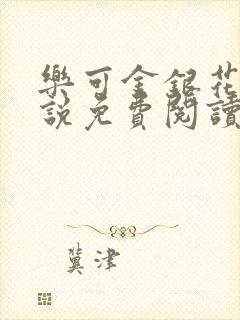 樂可金銀花
說免費閱讀
冀津